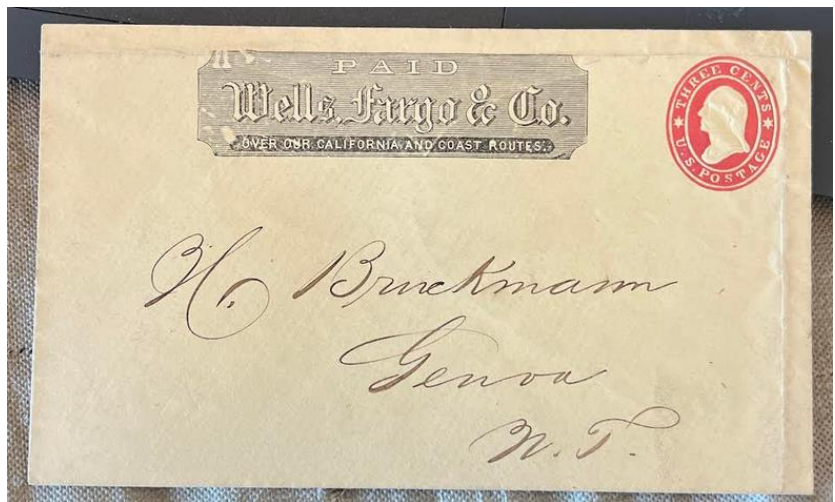 PAID
Wells, Fargo & Co.
OVER OUR CALIFORNIA AND COAST ROUTES.
THREE CENTS
U.S. POSTAGE
H. Bruckmann
Genoa
N. T.